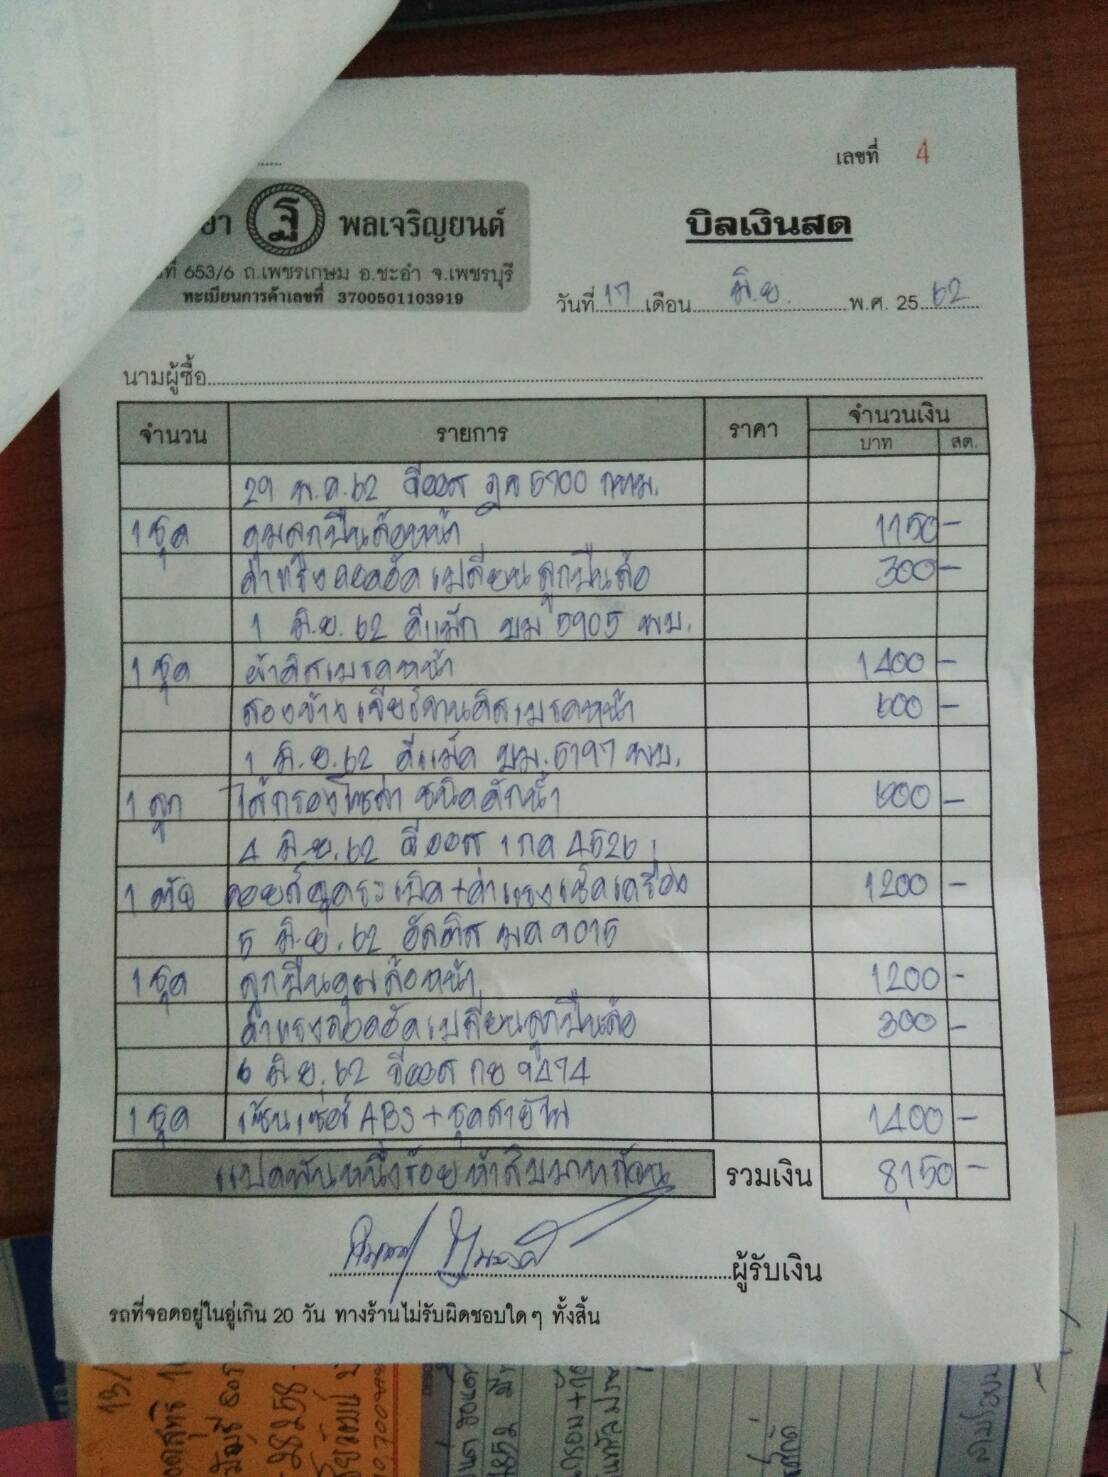 เลขที่ 4
ฐ พลเจริญยนต์
653/6 ถ.เพชรเกษม อ.ชะอำ จ.เพชรบุรี
ทะเบียนการค้าเลขที่ 3700501103919
บิลเงินสด
วันที่ 17 เดือน มิ.ย. พ.ศ. 2562
นามผู้ซื้อ
จำนวน รายการ ราคา จำนวนเงิน
บาท สต.
29 พ.ค. 62 วีออส 5900 กทม.
1 ชุด ดุมลูกปืนล้อหน้า 1150 -
ค่าแรงถอดอัดเปลี่ยนลูกปืนล้อ 300 -
1 มิ.ย. 62 ดีแม็ก บม 5905 พบ.
1 ชุด ผ้าดิสเบรคหน้า 1400 -
สองข้าง เจียร์จานดิสเบรคหน้า 600 -
1 มิ.ย. 62 ดีแม็ค บม. 5197 พบ.
1 ลูก ไส้กรองโซล่า ชนิดดักน้ำ 600 -
4 มิ.ย. 62 วีออส 1กค 4526
1 ตัว คอยล์จุดระเบิด + ค่าแรงเช็คเครื่อง 1200 -
5 มิ.ย. 62 อัลติส 9015
1 ชุด ลูกปืนดุมล้อหน้า 1200 -
ค่าแรงถอดอัดเปลี่ยนลูกปืนล้อ 300 -
6 มิ.ย. 62 วีออส กบ 9474
1 ชุด เซ็นเซอร์ ABS + ชุดสายไฟ 1400 -
แปดพันหนึ่งร้อยห้าสิบบาทถ้วน รวมเงิน 8,150 -
ผู้รับเงิน
รถที่จอดอยู่ในอู่เกิน 20 วัน ทางร้านไม่รับผิดชอบใดๆ ทั้งสิ้น